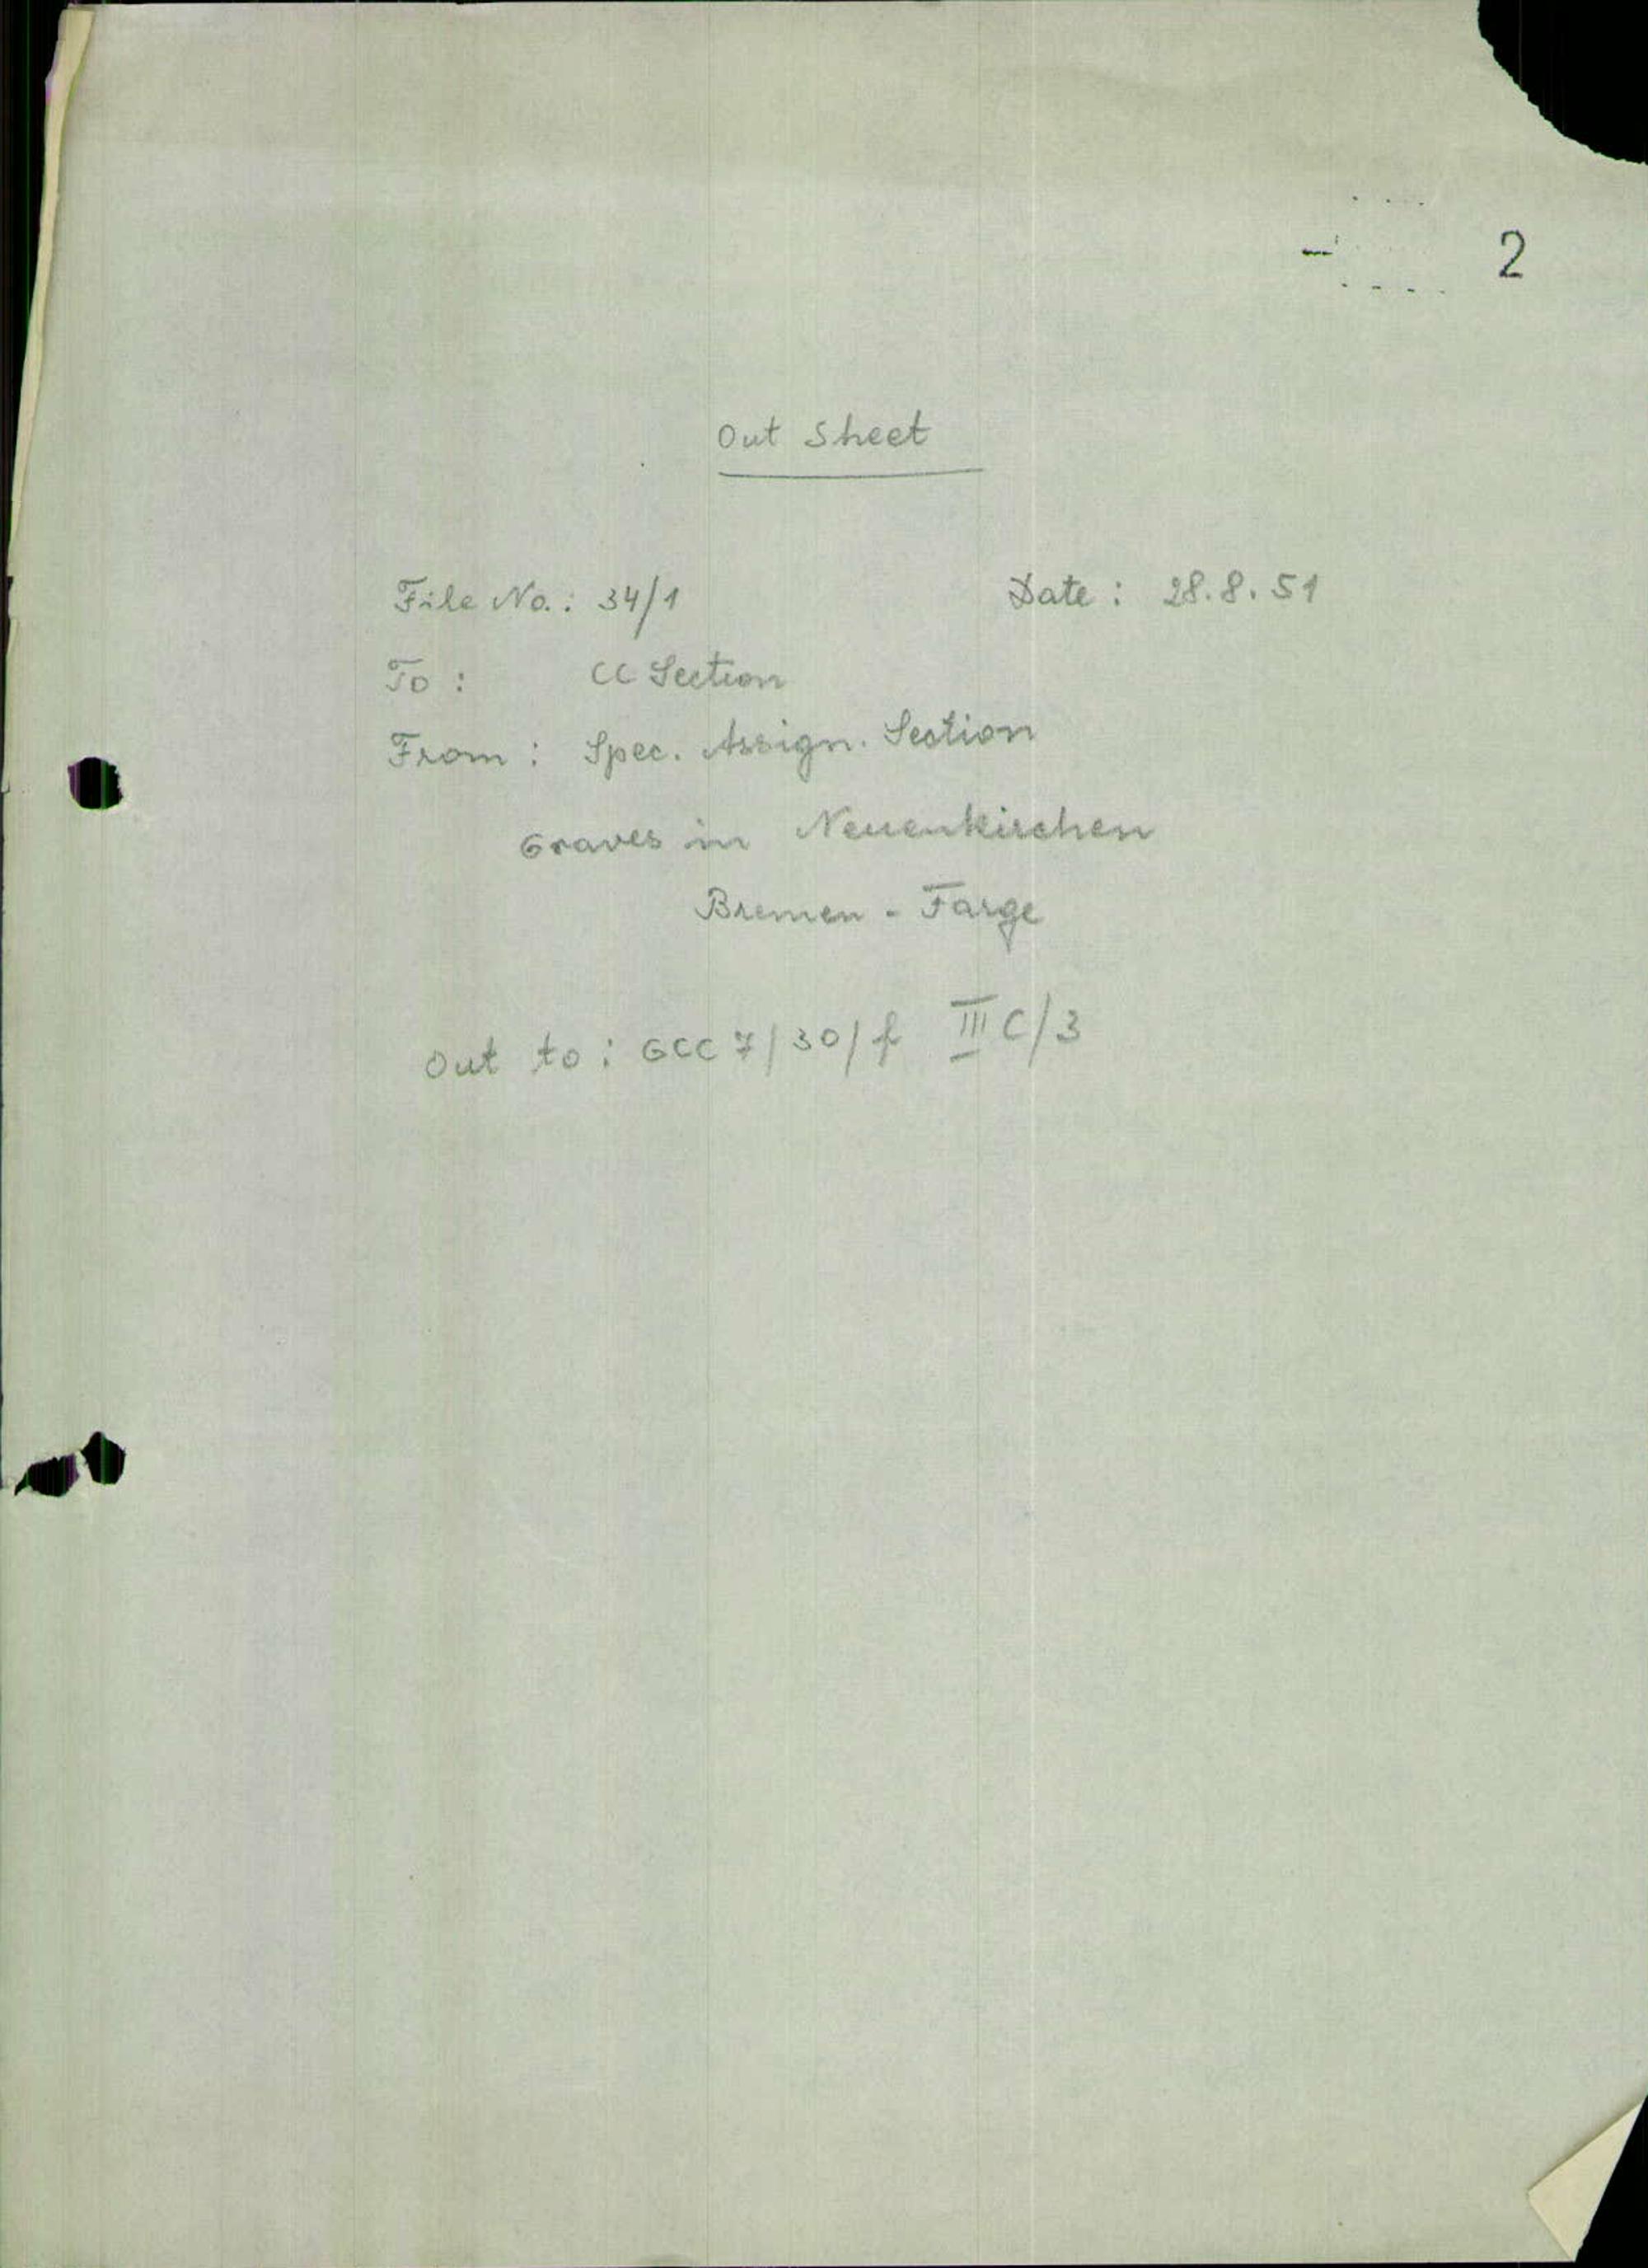 2
Out Sheet
File No.: 34/1 Date: 28.8.51
To: CC Section
From: Spec. Assign. Section
Graves in Neuenkirchen
Bremen - Farge
Out to: GCC 7/30/f III C/3